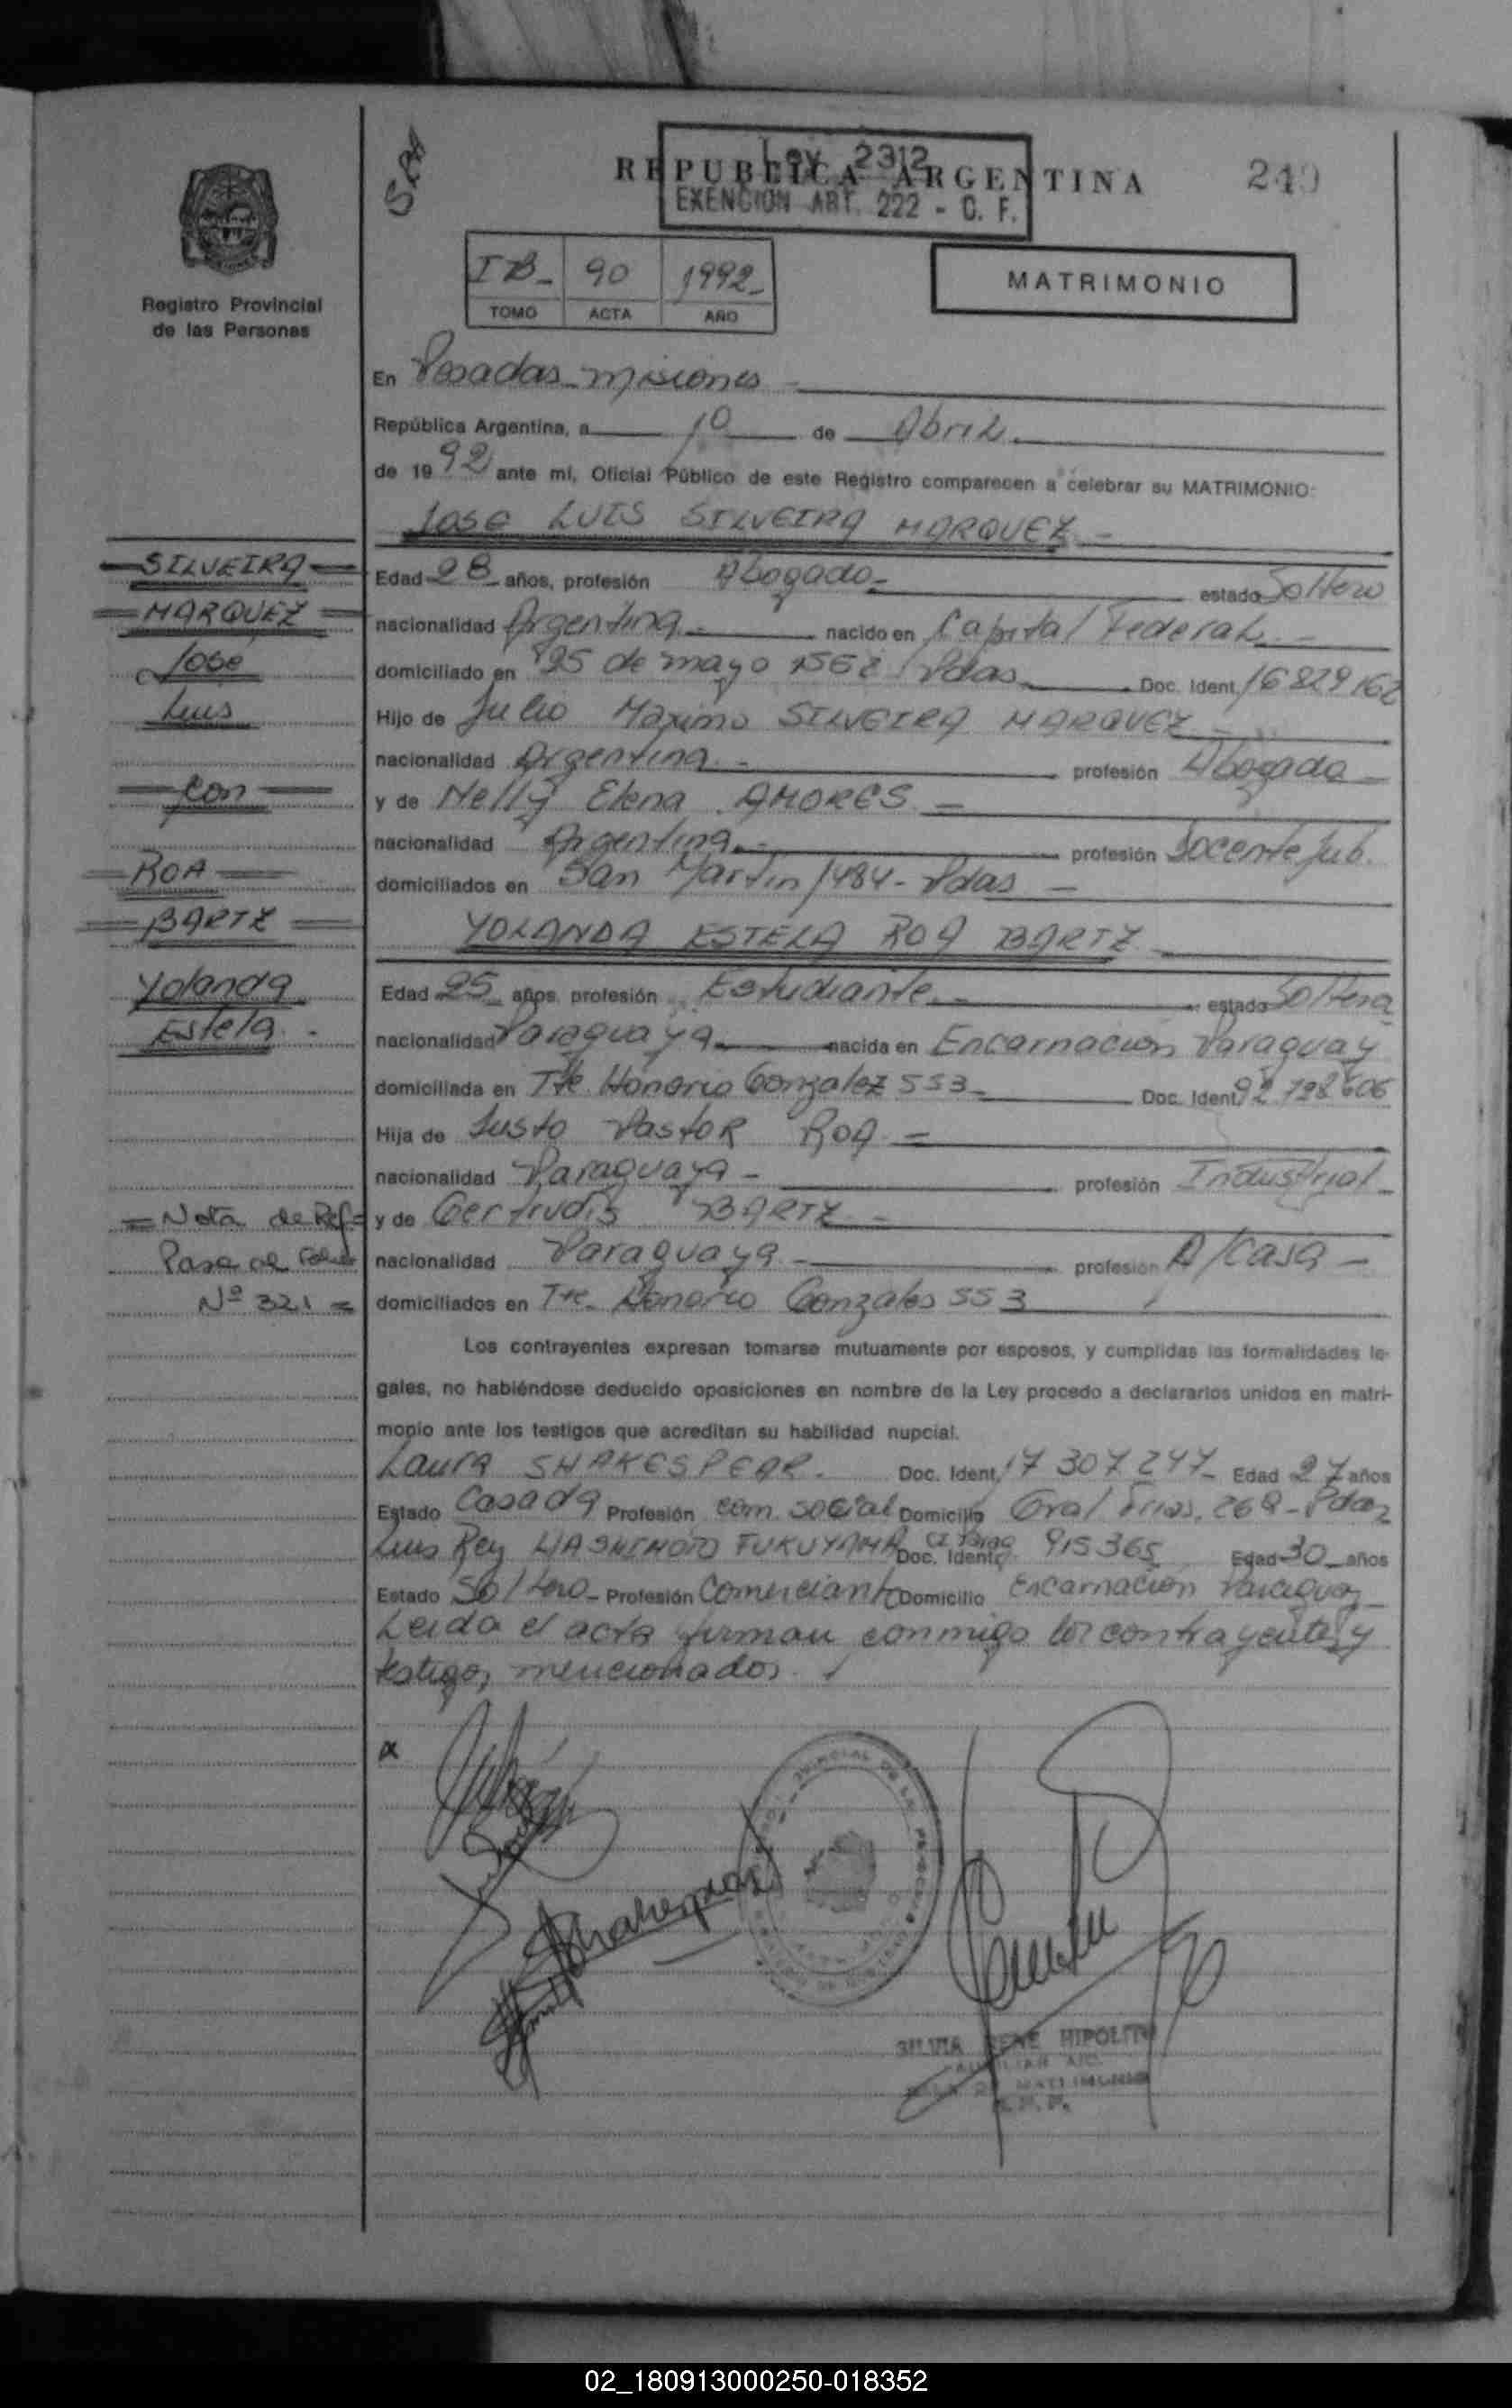 Ley 2312
REPUBLICA ARGENTINA
EXENCION ART. 222 - C. F.
Registro Provincial
de las Personas
IB- 90 1992-
TOMO ACTA AÑO
MATRIMONIO
En Posadas - misiones -
República Argentina, a 10 de Abril
de 1992 ante mí, Oficial Público de este Registro comparecen a celebrar su MATRIMONIO:
JOSE LUIS SILVEIRA MARQUEZ -
SILVEIRA
MARQUEZ
Jose
Luis
con
ROA
BARTZ
Yolanda
Estela. -
Edad 28 años, profesión Abogado - estado Soltero
nacionalidad Argentina - nacido en Capital Federal -
domiciliado en 25 de mayo 1562 Pdas Doc. Ident. 16829162
Hijo de Julio Maximo SILVEIRA MARQUEZ
nacionalidad Argentina - profesión Abogado -
y de Nelly Elena AMORES -
nacionalidad Argentina - profesión Docente Jub.
domiciliados en San Martin 1484 - Pdas -
YOLANDA ESTELA ROA BARTZ
Edad 25 años, profesión Estudiante - estado Soltera
nacionalidad Paraguaya nacida en Encarnacion Paraguay
domiciliada en Tte. Honorio Gonzalez 553 - Doc. Ident. 92 728 606
Hija de Justo Pastor ROA =
nacionalidad Paraguaya - profesión Industrial -
y de Gertrudis BARTZ -
nacionalidad Paraguaya - profesión A/casa -
domiciliados en Tte. Honorio Gonzales 553
= Nota de Ref =
Pasa al Folio
Nº 321 =
Los contrayentes expresan tomarse mutuamente por esposos, y cumplidas las formalidades le-
gales, no habiéndose deducido oposiciones en nombre de la Ley procedo a declararlos unidos en matri-
monio ante los testigos que acreditan su habilidad nupcial.
Laura SHAKESPEAR. Doc. Ident. 17 307 247 - Edad 27 años
Estado Casada Profesión com. social Domicilio Gral Frias, 268 - Pdas
Luis Rey HASHIMOTO FUKUYAMA CI Parag Doc. Ident. 915365 Edad 30 años
Estado Soltero - Profesión Comerciante Domicilio Encarnacion Paraguay
Leida el acta firman conmigo los contrayentes y
testigos mencionados.
Shakespear
SILVIA RENE HIPOLITO
02_180913000250-018352